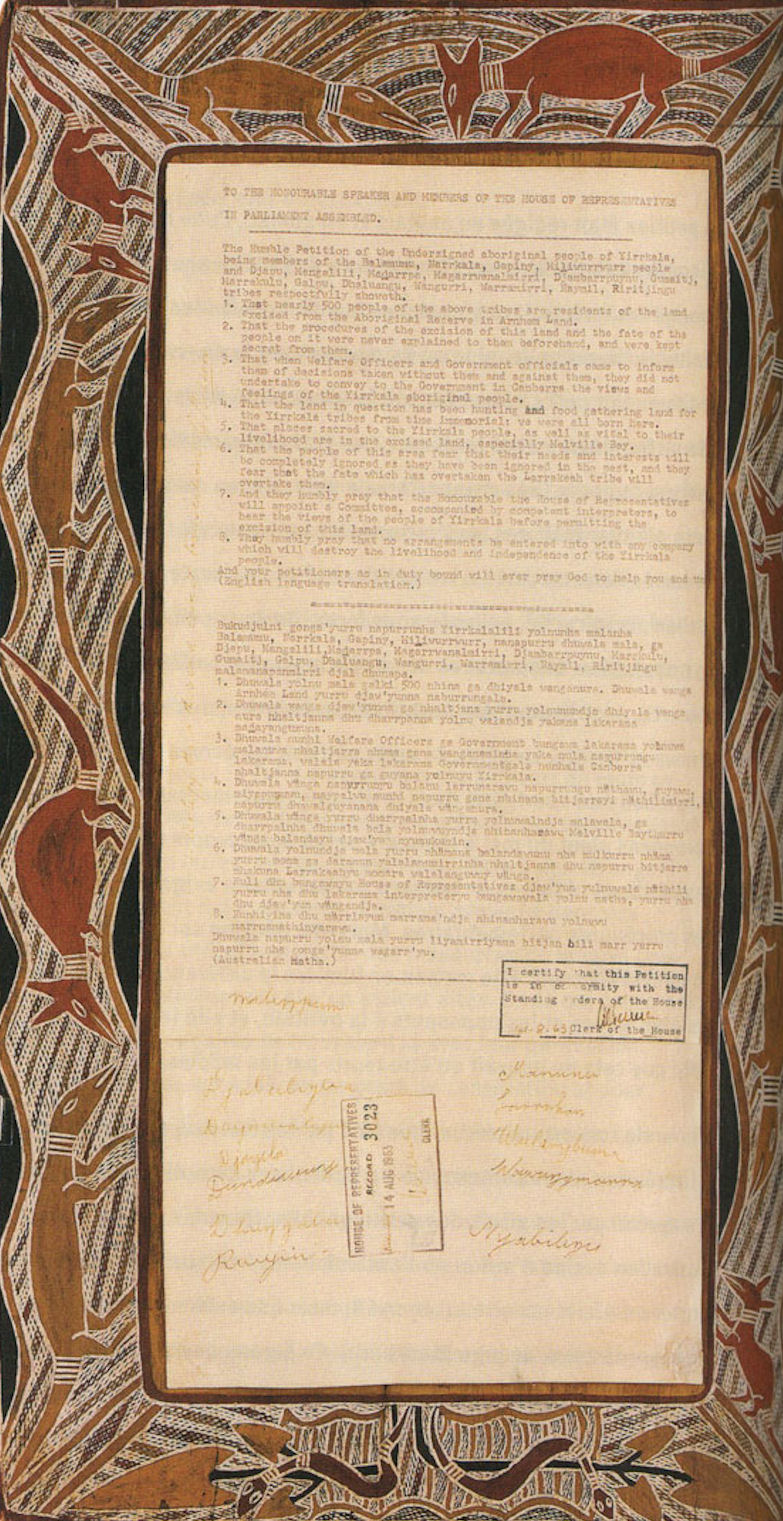 TO THE HONOURABLE SPEAKER AND MEMBERS OF THE HOUSE OF REPRESENTATIVES
IN PARLIAMENT ASSEMBLED.
The Humble Petition of the Undersigned aboriginal people of Yirrkala,
being members of the Balamumu, Narrkala, Gapiny, Miliwurrwurr people
and Djapu, Mangalili, Madarrpa, Magarrwanalmirri, Djambarrpuynu, Gumaitj,
Marrakulu, Galpu, Dhaluangu, Wangurri, Warramirri, Naymil, Riritjingu
tribes respectfully showeth.
1. That nearly 500 people of the above tribes are residents of the land
excised from the Aboriginal Reserve in Arnhem Land.
2. That the procedures of the excision of this land and the fate of the
people on it were never explained to them beforehand, and were kept
secret from them.
3. That when Welfare Officers and Government officials came to inform
them of decisions taken without them and against them, they did not
undertake to convey to the Government in Canberra the views and
feelings of the Yirrkala aboriginal people.
4. That the land in question has been hunting and food gathering land for
the Yirrkala tribes from time immemorial; we were all born here.
5. That places sacred to the Yirrkala people, as well as vital to their
livelihood are in the excised land, especially Melville Bay.
6. That the people of this area fear that their needs and interests will
be completely ignored as they have been ignored in the past, and they
fear that the fate which has overtaken the Larrakeah tribe will
overtake them.
7. And they humbly pray that the Honourable the House of Representatives
will appoint a Committee, accompanied by competent interpreters, to
hear the views of the people of Yirrkala before permitting the
excision of this land.
8. They humbly pray that no arrangements be entered into with any company
which will destroy the livelihood and independence of the Yirrkala
people.
And your petitioners as in duty bound will ever pray God to help you and us
(English language translation.)
Bukudjulni gonga'yurru napurrunha Yirrkalalili yolnunha malanha
Balamumu, Narrkala, Gapiny, Miliwurrwurr, nanapurru dhuwala mala, ga
Djapu, Mangalili, Madarrpa, Magarrwanalmirri, Djambarrpuynu, Marrkulu,
Gumaitj, Galpu, Dhaluangu, Wangurri, Warramirri, Naymil, Riritjingu
malamanapanmirri djal dhunapa.
1. Dhuwala yolnu mala galki 500 nhina ga dhiyala wanganura. Dhuwala wanga
Arnhem Land yurru djaw'yunna naburrungala.
2. Dhuwala wanga djaw'yunna ga nhaltjana yurru yolnunundja dhiyala wanga
nura nhaltjanna dhu dharrpanna yolnu walandja yakana lakarama
madayangumuna.
3. Dhuwala nunhi Welfare Officers ga Government bungawa lakarama yolnuwa
malanuwa nhaltjarra nhuma gana wanganaminha yaka nula napurrungu
lakarama, walala yaka lakarama Governmentgala nunhala Canberra
nhaltjanna napurru ga guyana yolnuyu Yirrkala.
4. Dhuwala wänga napurrungyu balanu larrunarawu napurrungu näthawu, guyawu,
miyapunuwu, maypalwu nunhi napurru gana nhinana bitjarrayi näthilimirri,
napurru dhawalguyanana dhiyala wänganura.
5. Dhuwala wänga yurru dharrpalnha yurru yolnuwalndja malawala, ga
dharrpalnha dhuwala bala yolnuwuyndja nhinanharawu Melville Baythurru
wänga balandayu djaw'yun nyumukunin.
6. Dhuwala yolnundja mala yurru nhämana balandawunu nha mulkurru nhäma
yurru moma ga daranun yalalanumirrinha nhaltjanna dhu napurru bitjarra
nhakuna Larrakeahyu momara walalanguwuy wänga.
7. Nuli dhu bungawayu House of Representatives djaw'yun yulnuwala näthili
yurru nha dhu lakarama interpreteryu bungawawala yolnu matha, yurru nha
dhu djaw'yun wängandja.
8. Nunhiyina dhu märrlayun marrama'ndja nhinanharawu yolnuwu
marrnamathinyarawu.
Dhuwala napurru yolnu mala yurru liyamirriyama bitjan bili marr yurru
napurru nha gonga'yunna wagarr'yu.
(Australian Matha.)
I certify that this Petition
is in conformity with the
Standing Orders of the House
14.8.63 Clerk of the House
Milirrpum
Djalalingba
Manunu
Daymbalipu
Larrakan
Dhayila
Wulanybuma
Dundiwuy
Wawunymarra
Dhuygala
Nyabilingu
Raiyin
HOUSE OF REPRESENTATIVES
RECORD 3023
14 AUG 1963
CLERK